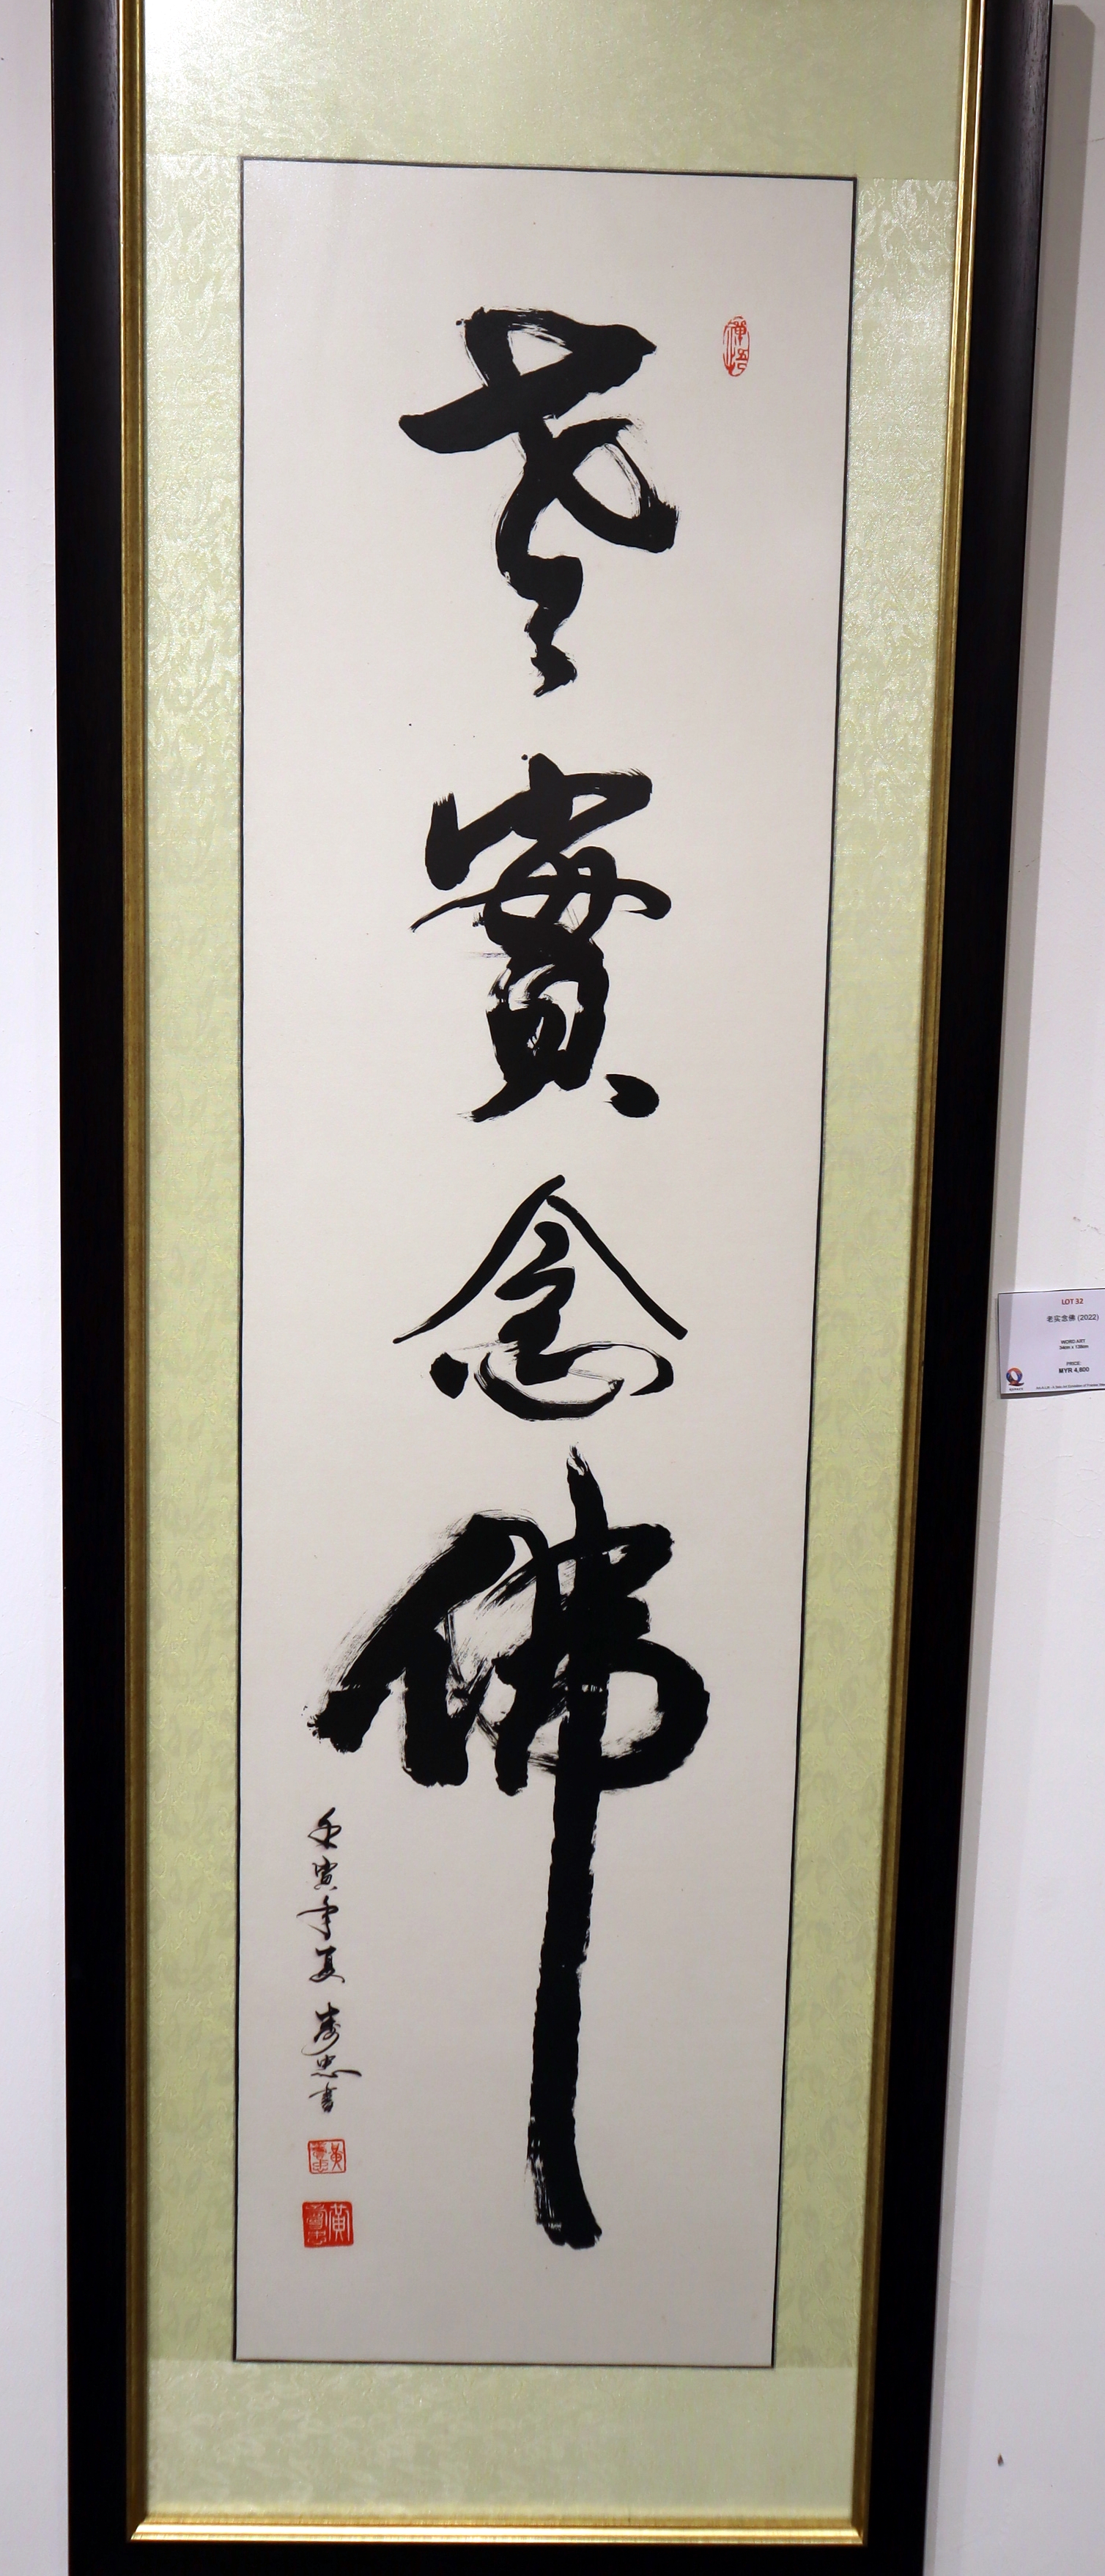 老實念佛
壬寅年夏壽忠書
LOT 32
老实念佛 (2022)
WORD ART
34cm x 138cm
PRICE:
MYR 4,800